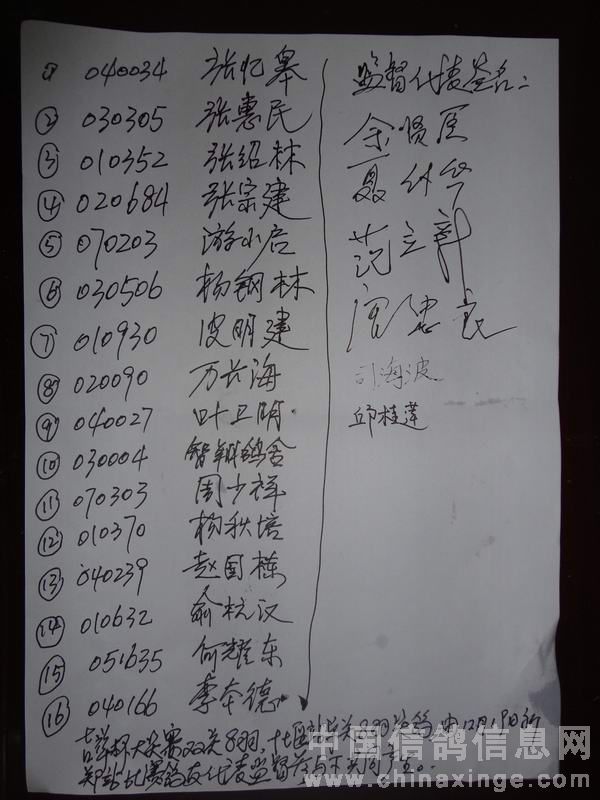 1 040034 张忆皋
② 030305 张惠民
③ 010352 张绍林
④ 020684 张宗建
⑤ 070203 游小启
⑥ 030506 杨钢林
⑦ 010930 皮明建
⑧ 020090 万长海
⑨ 040027 叶卫明
⑩ 030004 智翔鸽舍
⑪ 070303 周少祥
⑫ 010370 杨秋培
⑬ 040239 赵国栋
⑭ 010632 俞杭汉
⑮ 051635 何耀东
⑯ 040166 李本德
监督代表签名：
余贤臣
聂
范立新
忠良
海波
邱桂莲
吉祥杯大奖赛双关8羽,
12月1日
郑站比赛鸽友代表监督参与下共同产生。
中国信鸽信息网
www.chinaxinge.com